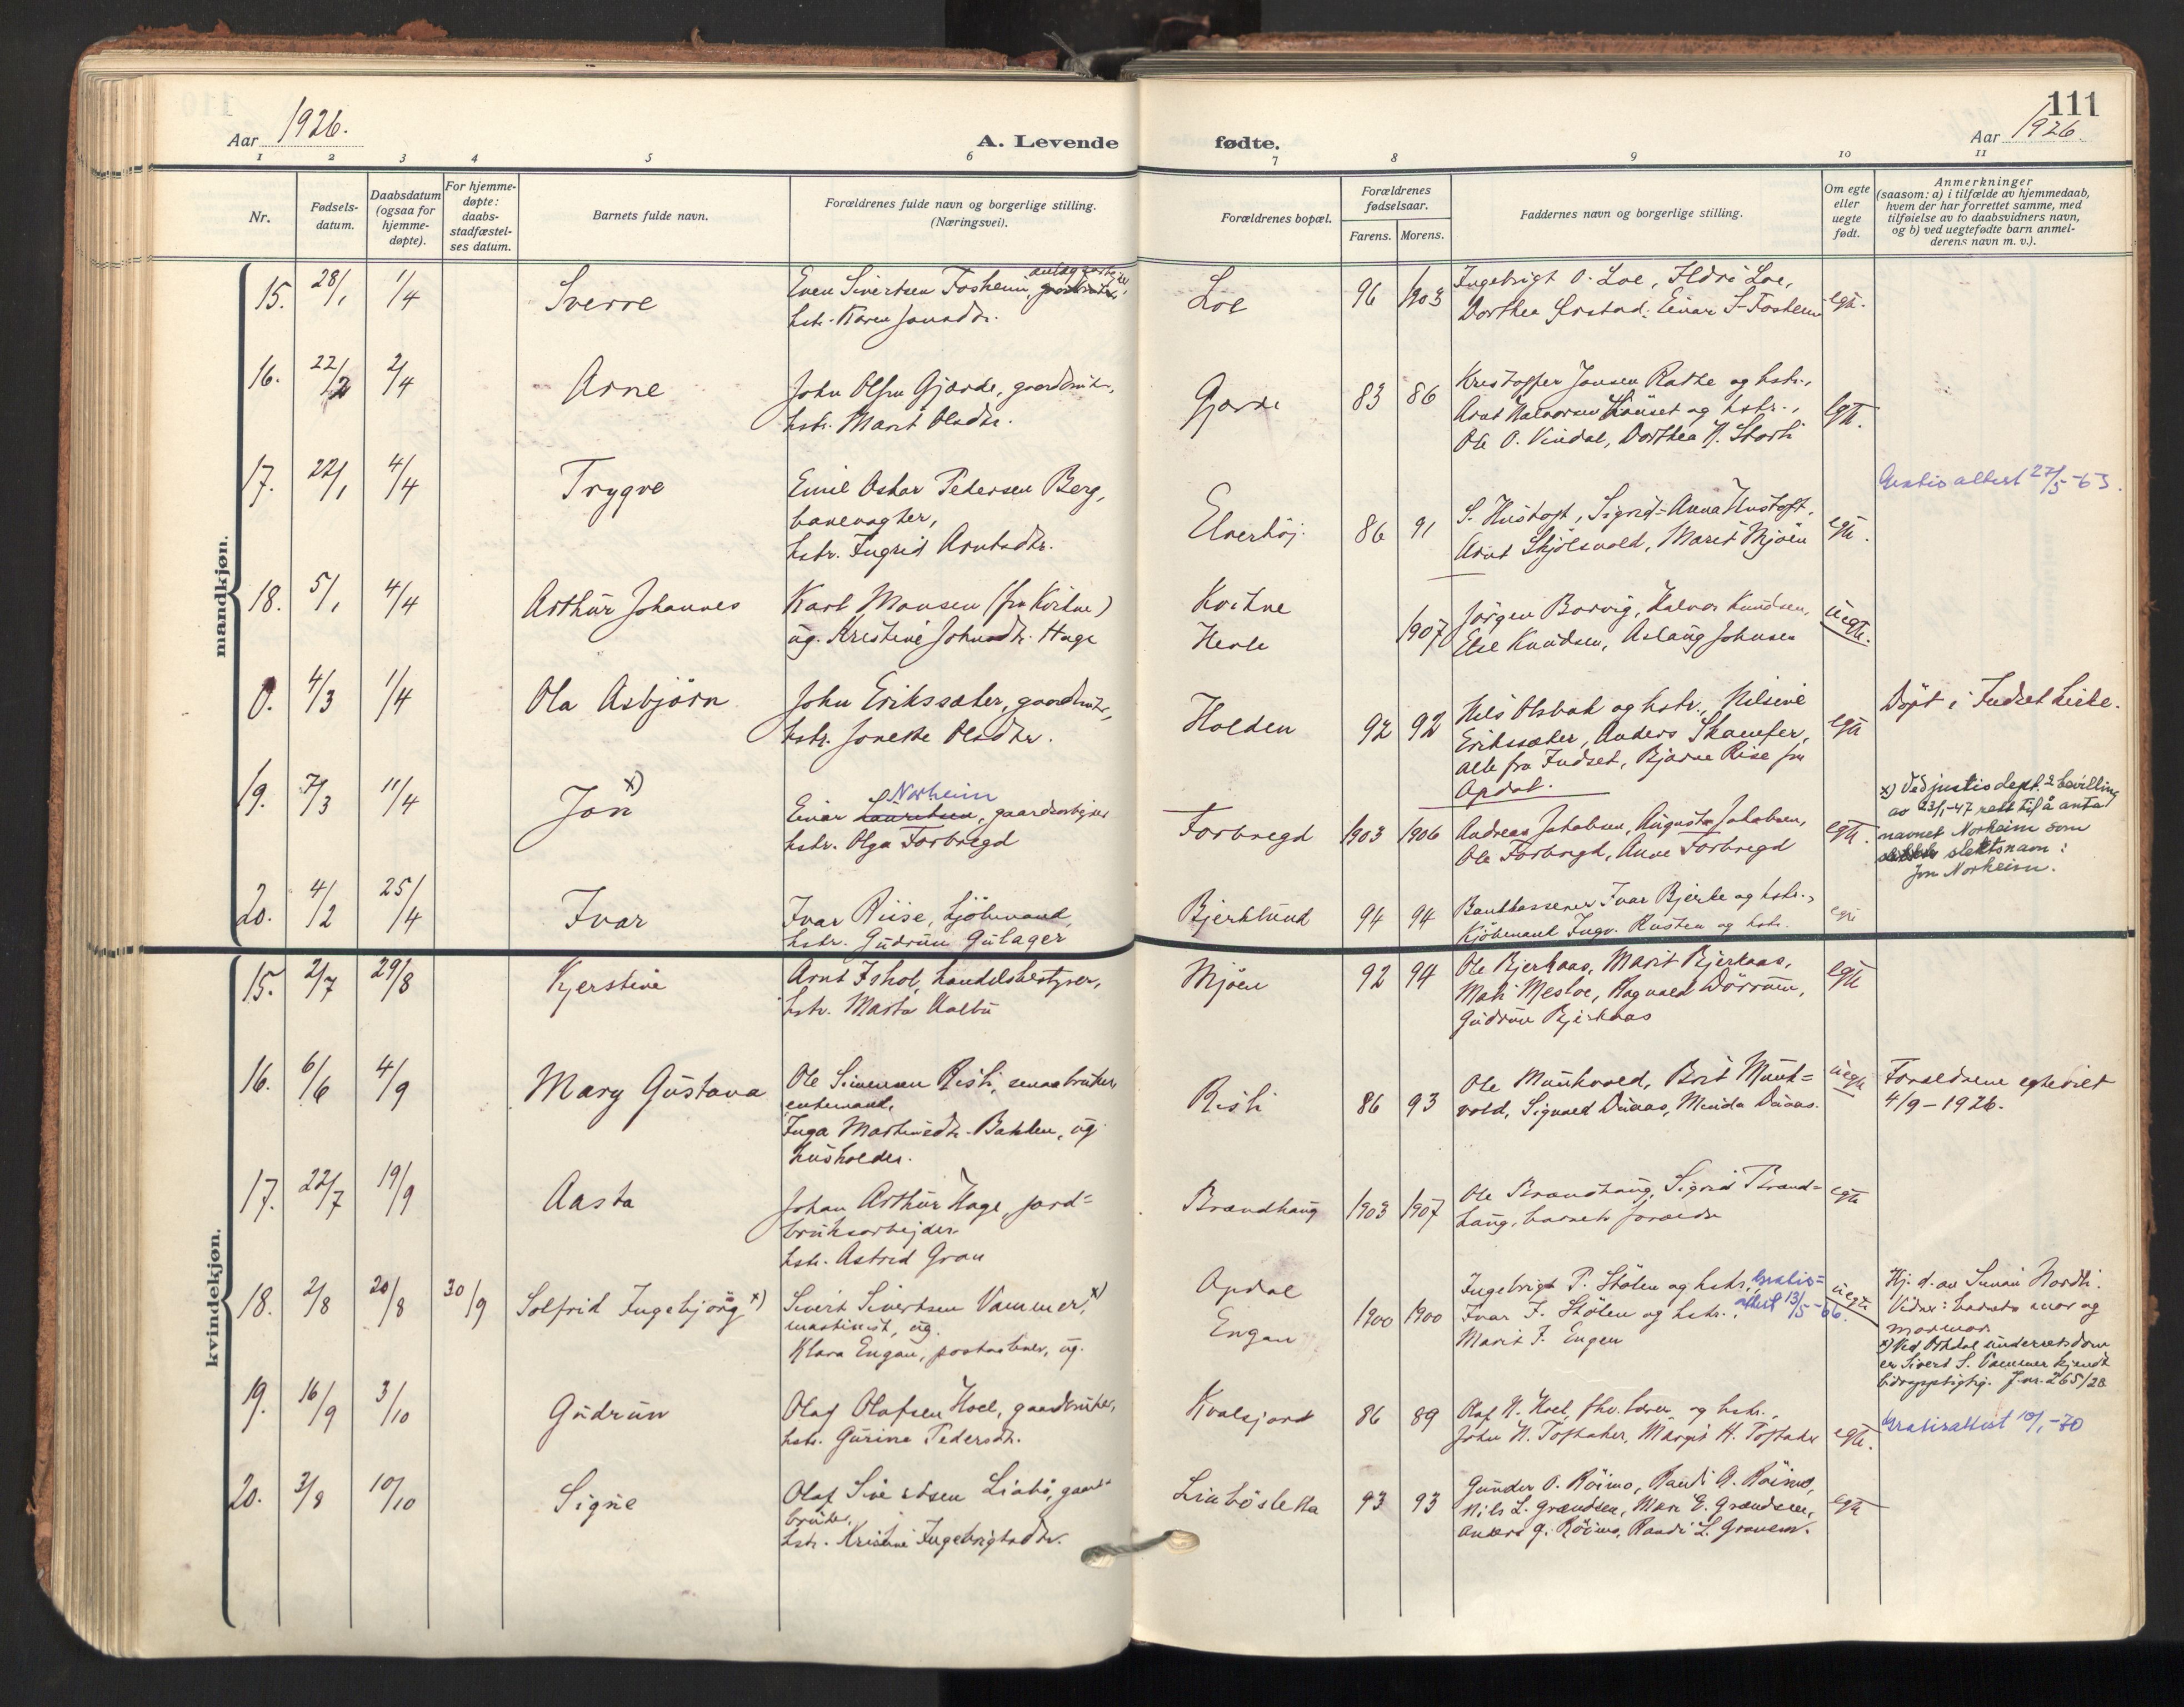 111
Aar 1926.
A. Levende fødte.
Aar 1926
1 2 3 4 5 6 7 8 9 10 11
Nr.
Fødsels-
datum.
Daabsdatum
(ogsaa for
hjemme-
døpte).
For hjemme-
døpte:
daabs-
stadfæstel-
ses datum.
Barnets fulde navn.
Forældrenes fulde navn og borgerlige stilling.
(Næringsvei).
Forældrenes bopæl.
Forældrenes
fødselsaar.
Farens. Morens.
Faddernes navn og borgerlige stilling.
Om egte
eller
uegte
født.
Anmerkninger
(saasom: a) i tilfælde av hjemmedaab,
hvem der har forrettet samme, med
tilføielse av to daabsvidners navn,
og b) ved uegtefødte barn anmel-
derens navn m. v.).
mandkjøn.
15. 28/1 1/4 Sverre
Even Sivertsen Fosheim,
hstr. Karen Jonsdtr.
Loe 96 1903
Ingebrigt O. Loe, Ildri Loe,
Dorthea Ørstad, Einar S. Fosheim
egte.
16. 22/2 2/4 Arne
John Olsen Gjærde, gaardbruker,
hstr. Marit Olsdtr.
Gjærde 83 86
Kristoffer Jonsen Rathe og hstr.,
Arnt Halvorsen Hauset og hstr.,
Ole O. Vindal, Dorthea N. Storli
egte.
17. 22/1 4/4 Trygve
Emil Oskar Pedersen Berg,
banevogter,
hstr. Ingrid Arntsdtr.
Elverhöj. 86 91
S. Hustoft, Sigrid-Anna Hustoft,
Arnt Skjölsvold, Marit Mjöen
egte.
Gratis attest 27/5-63.
18. 5/1 4/4 Arthur Johannes
Karl Monsen (fra Kvikne)
ug. Kristine Johnsdtr. Hage
Kvikne
Herle
1907
Jörgen Borvig, Halvor Knudsen,
Else Knudsen, Aslaug Johnsen
uegte.
0. 4/3 1/4 Ola Asbjörn
John Erikssæter, gaardbruker,
hstr. Jonette Olsdtr.
Holden 92 92
Nils Olsbak og hstr., Nilsine
Erikssæter, Anders Skamfer,
alle fra Indset, Bjarne Rise fra
Opdal.
egte
Döpt i Indset kirke.
19. 7/3 11/4 Jon x)
Norheim
Einar Lauritsen, gaardsarbeider
hstr. Olga Forbregd
Forbregd 1903 1906
Andreas Jakobsen, Augusta Jakobsen,
Ole Forbregd, Anne Forbregd
egte.
x) Ved justisdept.s bevilling
av 23/1-47 rett til å anta
navnet Norheim som
slektsnavn:
Jon Norheim.
20. 4/2 25/4 Ivar
Ivar Riise, kjöbmand,
hstr. Gudrun Gulager
Bjerklund 94 94
Bankkasserer Ivar Bjerke og hstr.,
Kjöbmand Ingv. Rusten og hstr.
egte
kvindekjøn.
15. 2/7 29/8 Kjerstine
Arnt Ishol, handelsbestyrer,
hstr. Marta Aalbu
Mjöen 92 94
Ole Bjerkaas, Marit Bjerkaas,
Mali Mesloe, Ragnvald Dörrum,
Gudrun Bjerkaas
egte
16. 6/6 4/9 Mary Gustava
Ole Simensen Risli, smaabruker,
enkemand,
Inga Martinsdtr. Bakken, ug.
husholder.
Risli 86 93
Ole Munkvold, Brit Munk-
vold, Sigvald Duaas, Minda Duaas.
uegte
Forældrene egteviet
4/9-1926.
17. 22/7 19/9 Aasta
Johan Arthur Hage, jord-
bruksarbejder.
hstr. Astrid Gran
Brændhaug 1903 1907
Ole Brændhaug, Sigrid Brænd-
haug, barnets forældre
egte
18. 2/8 20/8 30/9 Solfrid Ingebjörg x)
Sivert Sivertsen Vammer, x)
maskinist, ug.
Klara Engan, postaabner, ug.
Opdal
Engan
1900 1900
Ingebrigt P. Stölen og hstr.,
Ivar I. Stölen og hstr.,
Marit I. Engen
Gratis-
attest 13/5-66.
uegte
Hj. d. av Nordli.
Vidner: barnets mor og
mormor
x) Ved Orkdal underretsdom
er Sivert S. Vammer kjendt
bidragspligtig. J.nr. 265/28
19. 16/9 3/10 Gudrun
Olaf Olafsen Hoel, gaardbruker,
hstr. Gurine Pedersdtr.
Kvalsjord 86 89
Olaf N. Hoel, fhv. lærer og hstr.,
John N. Toftaker, Margit H. Toftaker
egte.
Gratisattest 10/1-70
20. 3/8 10/10 Signe
Olaf Sivertsen Liabö, gaard-
bruker,
hstr. Kristine Ingebrigtsdtr.
Liabösletta 93 93
Gunder O. Röimo, Randi A. Röimo,
Nils L. Grændsen, Mari E. Grændsen,
Anders G. Röimo, Randi L. Gravem.
egte